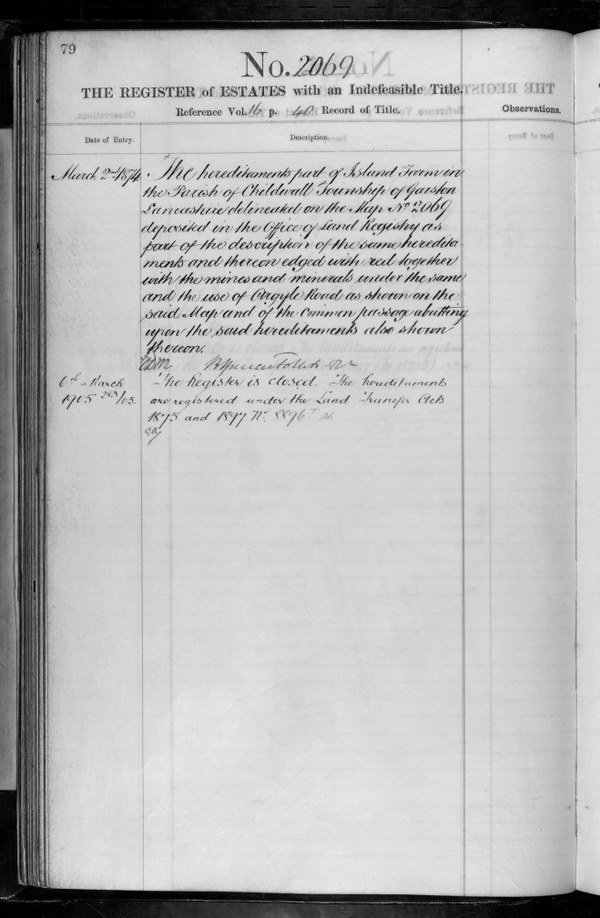 79
No. 2069
THE REGISTER of ESTATES with an Indefeasible Title.
Reference Vol. 16 p. 40 Record of Title.
Observations.
Date of Entry.
Description.
March 2nd 1874. The hereditaments part of Island Farm in
the Parish of Childwall Township of Garston
Lancashire delineated on the Map No 2069
deposited in the Office of Land Registry as
part of the description of the same heredita-
ments and thereon edged with red together
with the mines and minerals under the same
and the use of Argyle Road as shown on the
said Map and of the common passage abutting
upon the said hereditaments also shown
thereon.
6th March The Register is closed. The hereditaments
1905 283/05. are registered under the Land Transfer Acts
1875 and 1897 No. 8896